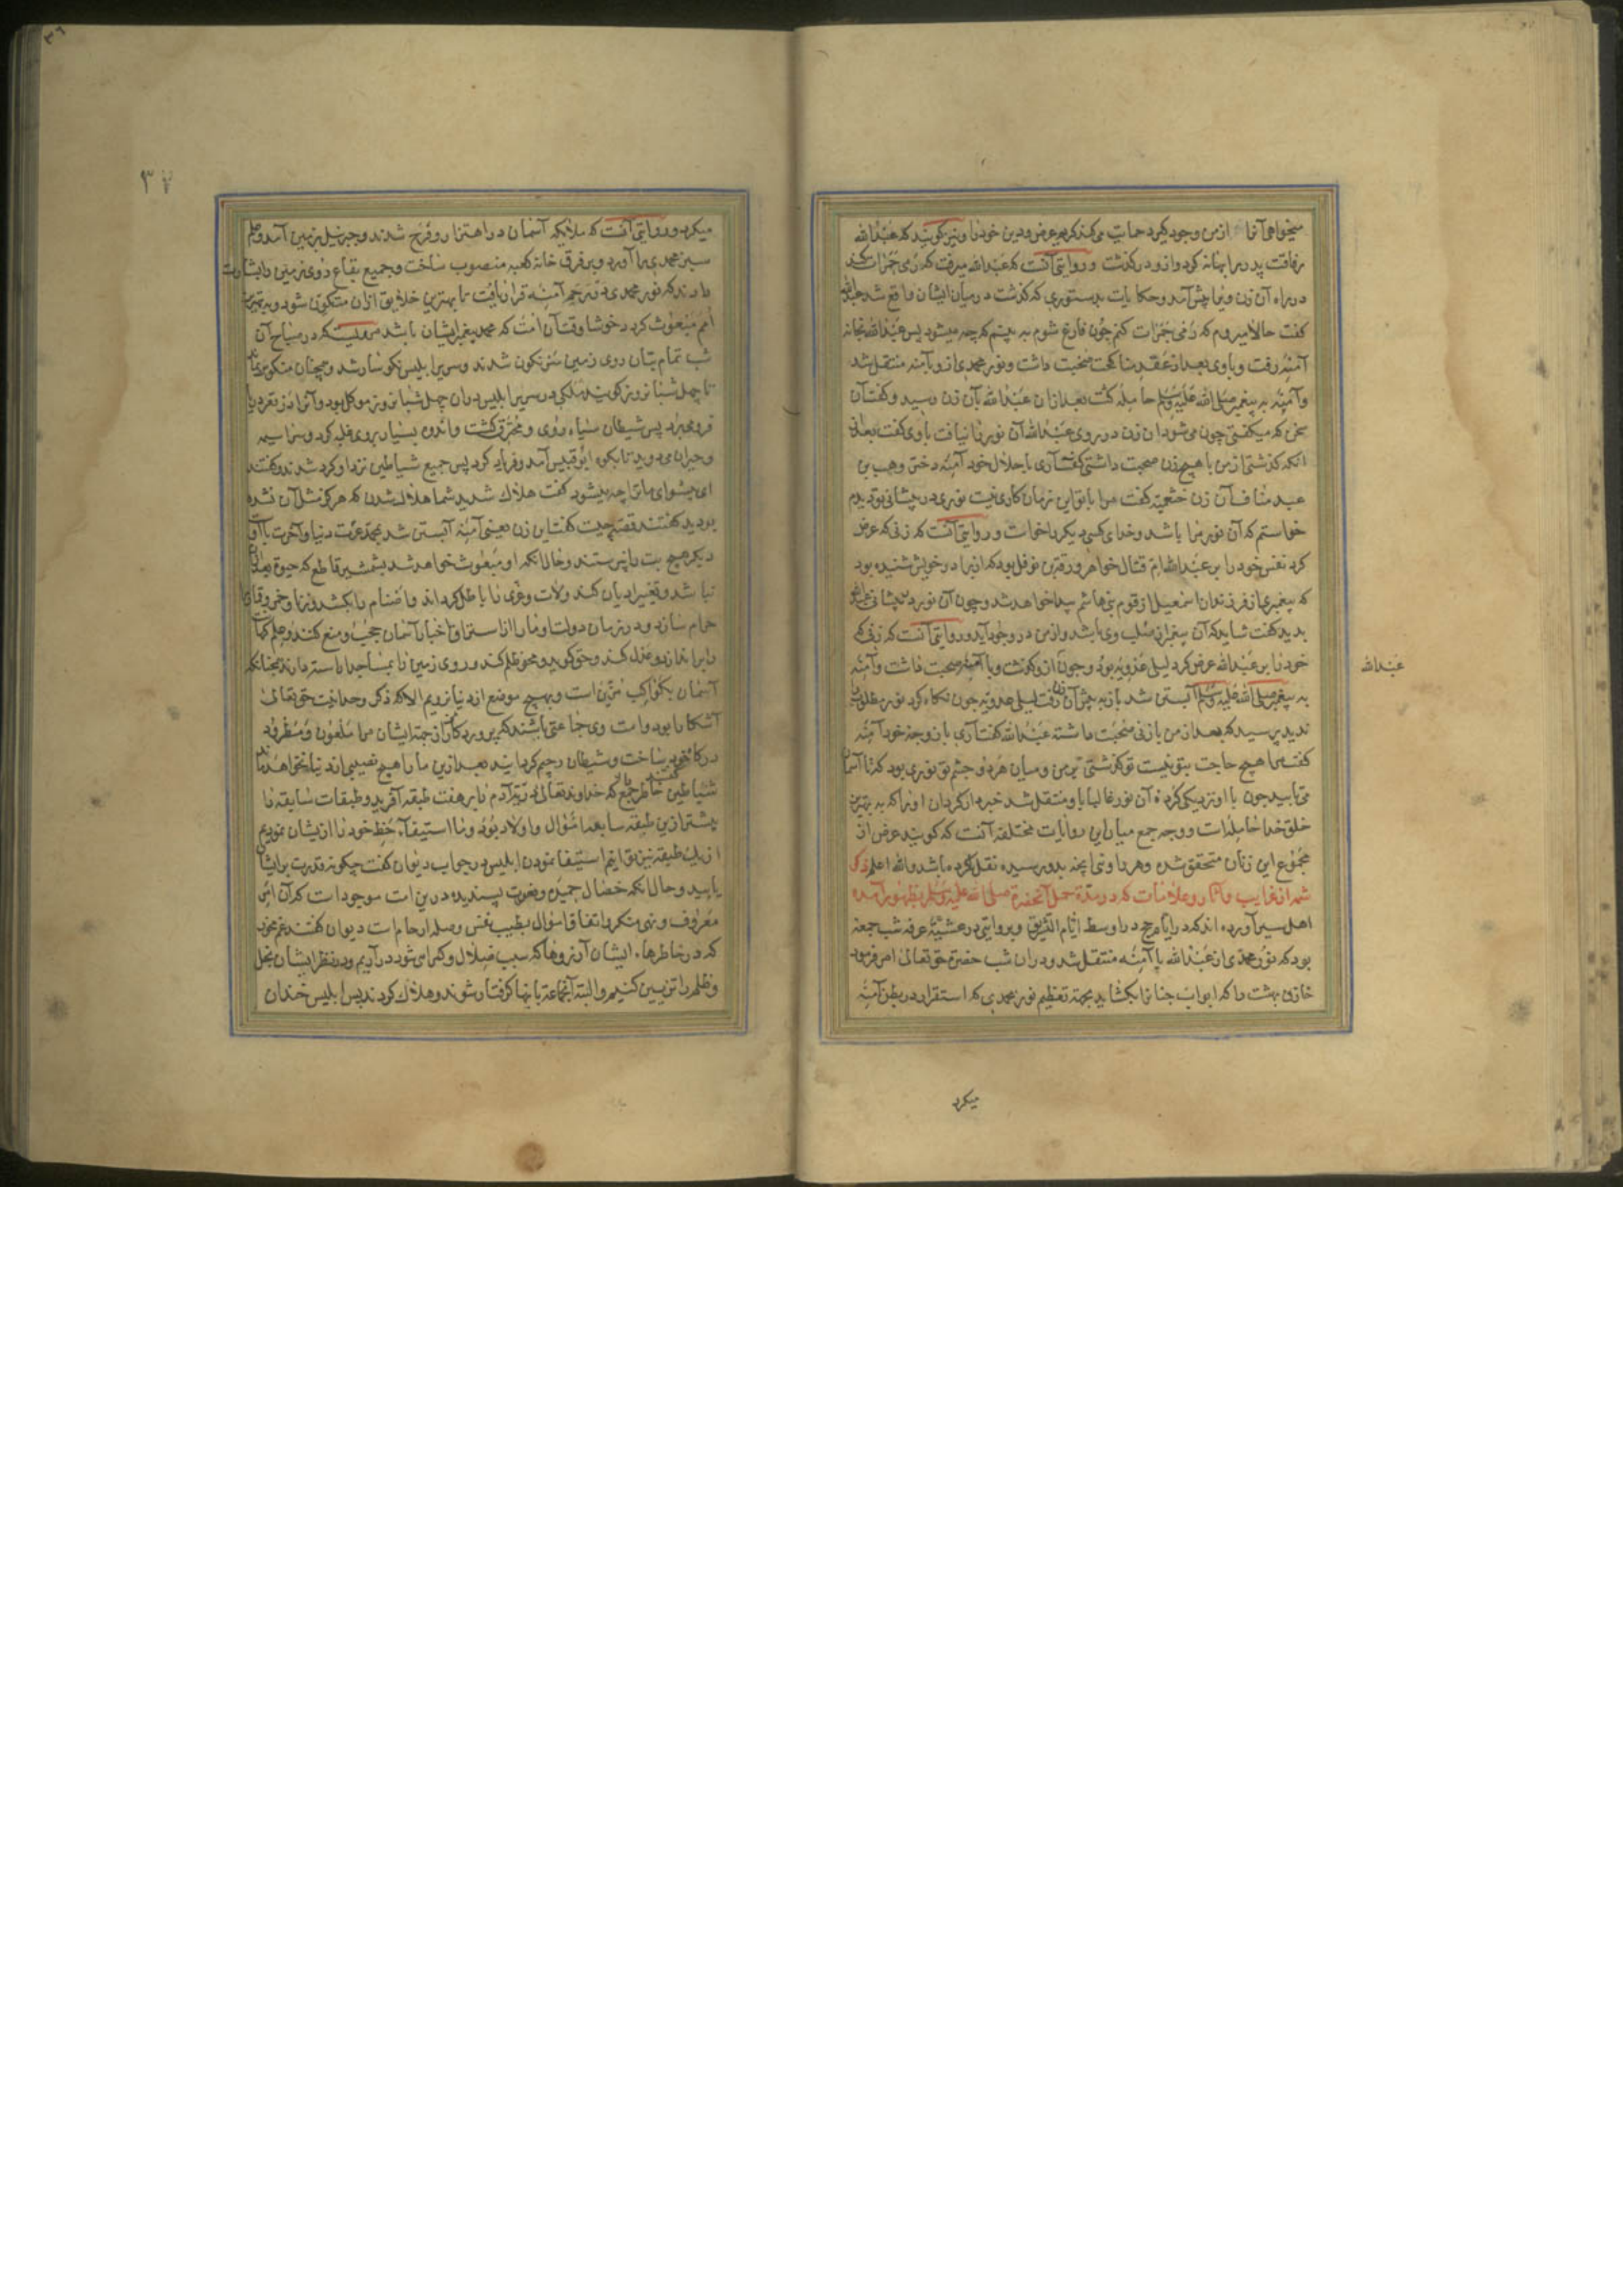 میخواهی آنرا از من وجود گیرد حمایت می‌کند کریم عرض و دین خود را و نیز گویند که عبدالله
رفاقت پدر را بهانه کرد و ازو در گذشت و روایتی آنست که عبدالله میرفت که رمی جمرات کند
در راه آن زن ویرا پیش آمد و حکایت بدستوری که گذشت در میان ایشان واقع شد عبدالله
گفت حالا میروم که رمی جمرات کنم چون فارغ شوم به بینم که چه میشود پس عبدالله بخانه
آمنه رفت و با وی بعد از عقد مناکحت صحبت داشت و نور محمدی ازو بآمنه منتقل شد
و آمنه به پیغمبر صلی الله علیه وسلم حامله گشت بعد ازان عبدالله بآن زن رسید و گفت آن
سخن که میگفتی چون می‌شود ان زن در روی عبدالله آن نور را نیافت با وی گفت بعد از
انکه گذشتی از من با هیچ زن صحبت داشتی گفت آری با حلال خود آمنه دختر وهب بن
عبد مناف آن زن خثعمیه گفت مرا با تو این زمان کاری نیست نوری در پیشانی تو دیدم
خواستم که آن نور مرا باشد و خدای کسی دیگر را خواست و روایتی آنست که زنی که عرض
کرد نفس خود را بر عبدالله ام قتال خواهر ورقة بن نوفل بود که از برادر خویش شنیده بود
که پیغمبری از فرزندان اسمعیل از قوم بنی هاشم پیدا خواهد شد و چون آن نور در پیشانی عبدالله
بدید گفت شاید که آن پیغمبر از صلب وی باشد و از من در وجود آید و روایتی آنست که زنی که
خود را بر عبدالله عرض کرد لیلی عدویه بود و چون ازو گذشت و با آمنه صحبت داشت و آمنه
عبدالله
به پیغمبر صلی الله علیه وسلم آبستن شد باز به پیش آن زن رفت لیلی عدویه چون نگاه کرد نور مطلوب را
ندید پرسید که بعد از من با زنی صحبت داشته عبدالله گفت آری با زوجه خود آمنه
گفت مرا هیچ حاجت بتو نیست تو گذشتی بر من و میان هر دو چشم تو نوری بود که تا آسمان
می‌تابید چون با او نزدیکی کردی آن نور غالبا باو منتقل شد خبردار گردان او را که به بهترین
خلق خدا حامله است و وجه جمع میان این روایات مختلفه آنست که گویند عرض از
مجموع این زنان متحقق شده و هر راوی آنچه بدو رسیده نقل کرده باشد والله اعلم ذکر
شمه از غرایب و آثار و علامات که در مدة حمل آنحضرة صلی الله علیه وسلم بظهور آمده
اهل سیر آورده اند که در ایام حج در اوسط ایام التشریق و بروایتی در عشیه عرفه شب جمعه
بود که نور محمدی از عبدالله بآمنه منتقل شد و دران شب حضرة حق تعالی امر فرمود
خازن بهشت را که ابواب جنان را بگشاید بجهة تعظیم نور محمدی که استقرار در بطن آمنه
میکرد
۳۶
۳۷
میکرد و روایتی آنست که ملائکه آسمان در اهتزاز و فرح شدند و جبرئیل بزمین آمد و علم
سبز محمدی را آورد و بر فرق خانه کعبه منصوب ساخت و جمیع بقاع روی زمین را بشارت
دادند که نور محمدی در رحم آمنه قرار یافت تا بهترین خلایق ازان متکون شود و به بهترین
امم مبعوث گردد خوشا وقت آن امت که محمد پیغمبر ایشان باشد مرویست که در صباح آن
شب تمام بتان روی زمین سرنگون شدند و سریر ابلیس نگوسار شد و همچنان منکوس
تا چهل شبانروز گویند ملکی در سریر ابلیس دران چهل شبانروز موکل بود و آنرا در قعر دریا
فرو می‌برد پس شیطان سیاه روی و محترق گشت و اندوه بسیار بر وی غلبه کرد و سراسیمه
و حیران می‌دوید تا بکوه ابو قبیس آمد و فریاد کرد پس جمیع شیاطین نزد او گرد شدند و گفتند
ای پیشوای ما ترا چه میشود گفت هلاک شدید شما هلاک شدن که هرگز مثل آن نشده
بودید گفتند قصه چیست گفت این زن یعنی آمنه آبستن شد بمحمد عزت دنیا و آخرت با او
دیگر هیچ بت را پرستند و حال آنکه او مبعوث خواهد شد بشمشیر قاطع که حیوة بعد ازان
نباشد و تغییر ادیان کند و لات و عزی را باطل گرداند و اصنام را بکشد و زنا و خمر و قمار
حرام سازد و در زمان دولت او ما را از استراق اخبار آسمان حجب و منع کنند و علم کهانت
را براندازد و عدل کند و حق گوید و محو ظلم کند و روی زمین را بمساجد آراسته دارند همچنانکه
آسمان بکواکب مزین است و بهیچ موضع از دنیا نرویم الا که ذکر وحدانیت حق تعالی
آشکارا بود و امت وی جماعتی باشند که پروردگار از جهة ایشان مرا ملعون و مطرود
درگاه خود ساخت و شیطان رجیم گردانید بعد ازین ما را هیچ نصیبی از دنیا نخواهد ماند
شیاطین گفتند خاطر جمع دار که خداوند تعالی ذریه آدم را بر هفت طبقه آفرید و طبقات سابقه را
بیشتر ازین طبقه سابعه اموال و اولاد بود و ما استیفاء حظ خود را از ایشان نمودیم
ازین طبقه نیز توانیم استیفا نمودن ابلیس در جواب دیوان گفت چگونه قدرت بر ایشان
یابید و حال آنکه خصال حمیده و نعوت پسندیده درین امت موجود است که آن امر
معروف و نهی منکر و انفاق اموال بطیب نفس و صله ارحام است دیوان گفتند غم مخور
که در خاطرهاء ایشان آرزوها که سبب ضلال و گمراهی شود در آریم و در نظر ایشان بخل
و ظلم را تزیین کنیم و البته آنجماعة بآنها گرفتار شوند و هلاک گردند پس ابلیس خندان